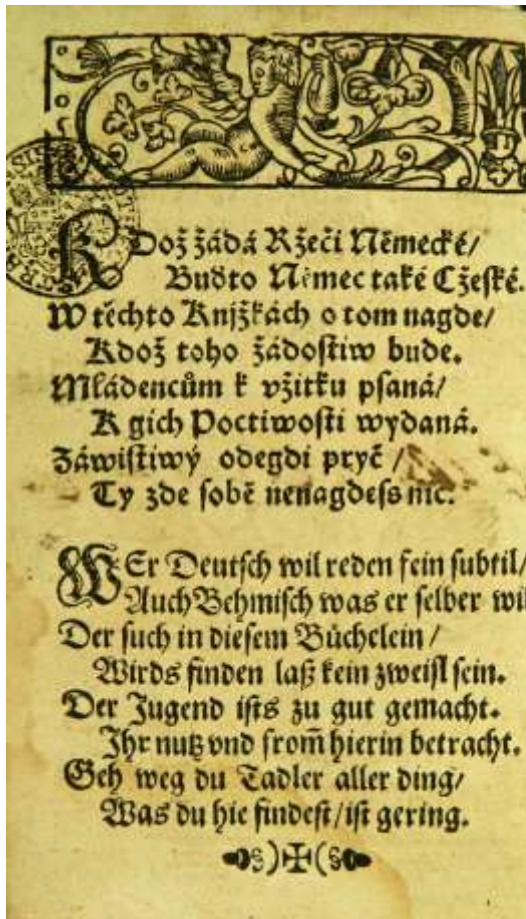 KDož žádá Ržeči Německé/
Buďto Němec také Cžeské.
W těchto Knjžkách o tom nagde/
Kdož toho žádostiw bude.
Mládencům k vžitku psaná/
K gich Poctiwosti wydaná.
Záwistiwý odegdi pryč /
Ty zde sobě nenagdess nic.
WEr Deutsch wil reden fein subtil/
Auch Behmisch was er selber wil
Der such in diesem Büchelein /
Wirds finden laß kein zweifl sein.
Der Jugend ists zu gut gemacht.
Ihr nutz vnd from̃ hierin betracht.
Geh weg du Tadler aller ding/
Was du hie findest/ist gering.